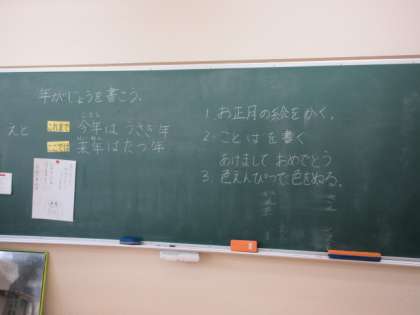 年がじょうを書こう。
えと
今年は うさぎ年
来年はたつ年
1. お正月の絵をかく。
2. ことばを書く
あけまして おめでとう
3. 色えんぴつで色をぬる。